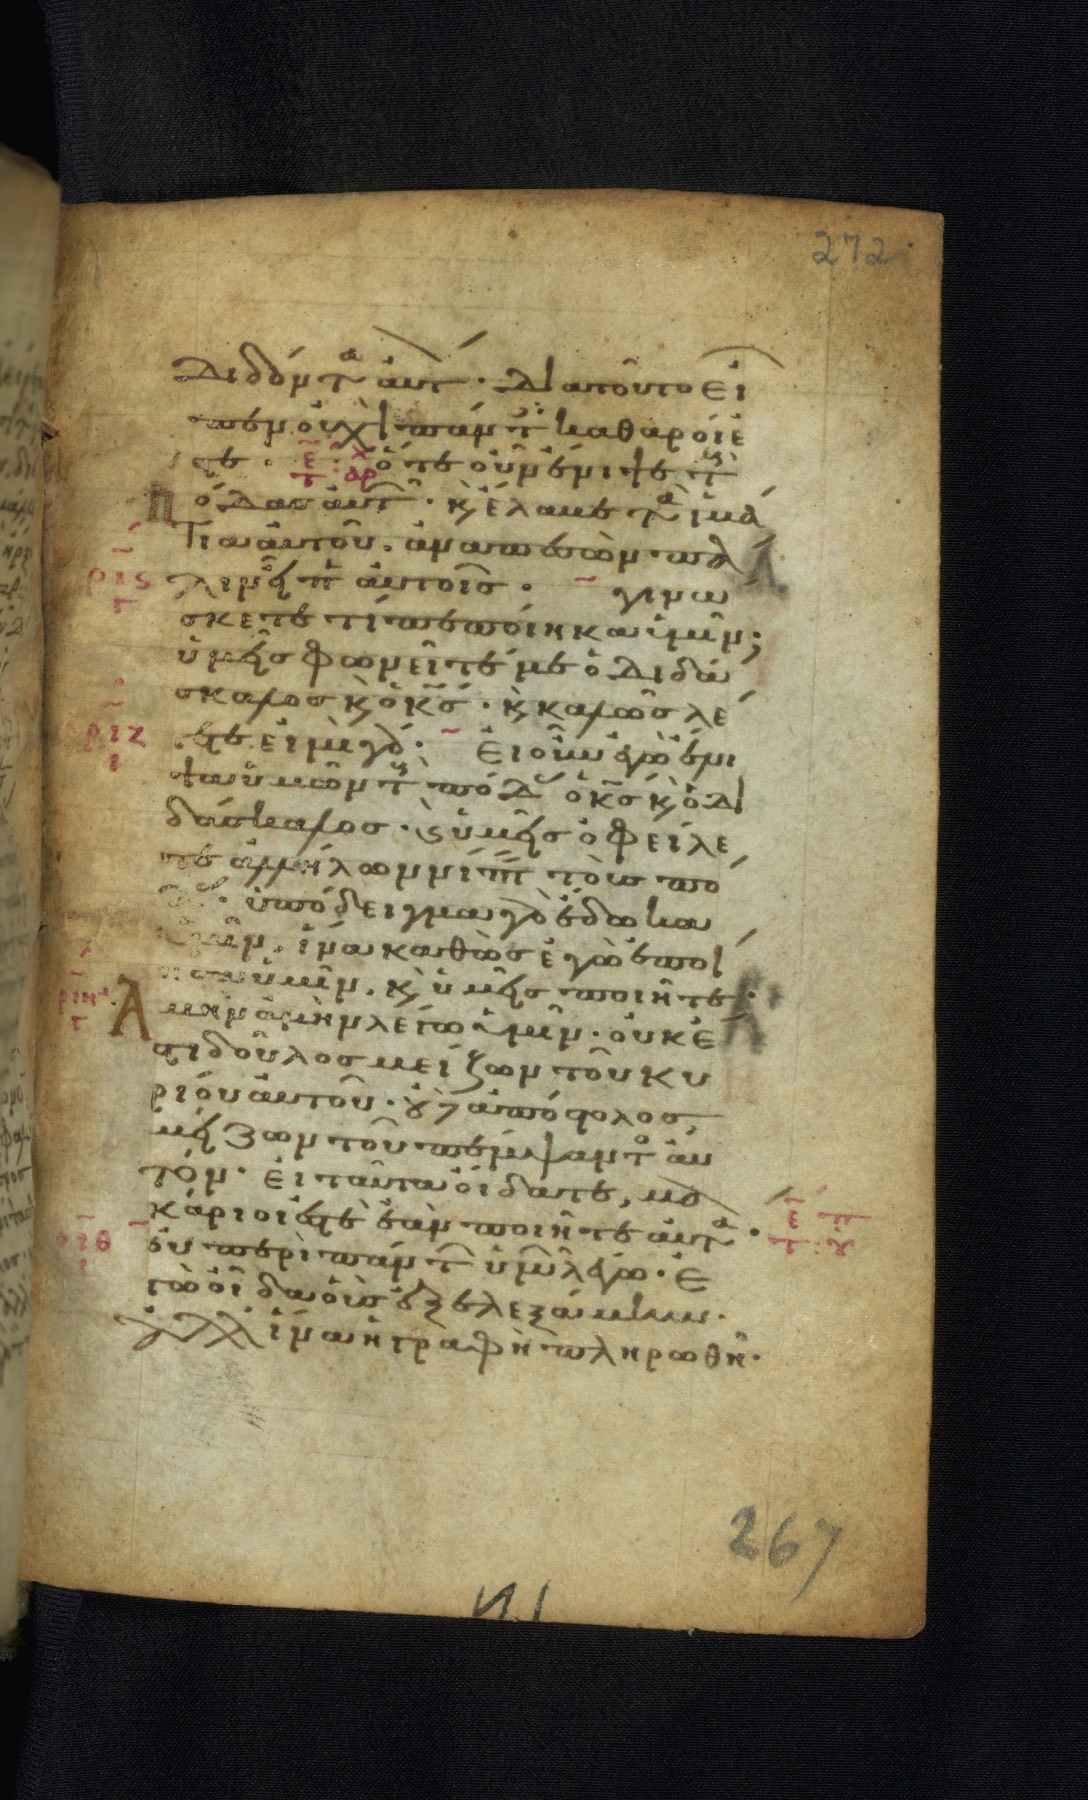 272
διδόντα αὐτ· διατοῦτο εἶ
πεν οὐχὶ πάντ καθαροί ἐ
τε· ὅτε οὖν ἔνιψε τοὺς
πόδασ αὐτ· κ ἔλαβε τὰ ἱμά
τια αὐτοῦ. ἀναπεσὼν πά
ρις λιν εἶπ αὐτοῖσ· γινώ
σκετε τί πεποίηκα ὑμῖν;
ὑμεῖσ φωνεῖτέ με ὁ διδά
σκαλοσ κ ὁ κς· κ καλῶσ λέ
ριζ γετε εἰμὶ γάρ· εἰ οὖν ἐγὼ ἔνι
ψα ὑμῶν τοὺς πόδ ὁ κς κ ὁ δι
δάσκαλοσ· κ ὑμεῖσ ὀφείλε
τε ἀλλήλων νίπτ τοὺσ πό
δασ· ὑπόδειγμα γὰρ ἔδωκα
ὑμῖν. ἵνα καθὼσ ἐγὼ ἐποί
ησα ὑμῖν. κ ὑμεῖσ ποιῆτε·
ριη Ἀμὴν ἀμὴν λέγω ὑμῖν· οὐκ ἔ
στι δοῦλοσ μείζων τοῦ κυ
ρίου αὐτοῦ· οὐδὲ ἀπόστολοσ
μείζων τοῦ πέμψαντο αὐ
τόν· εἰ ταῦτα οἴδατε, μα
κάριοί ἐστε ἐὰν ποιῆτε αὐτά·
ριθ οὐ περὶ πάντ ὑμῶν λέγω· ἐ
γὼ οἶδα οὓσ ἐξελεξάμην·
ἀλλ ἵνα ἡ γραφὴ πληρωθῆ·
267